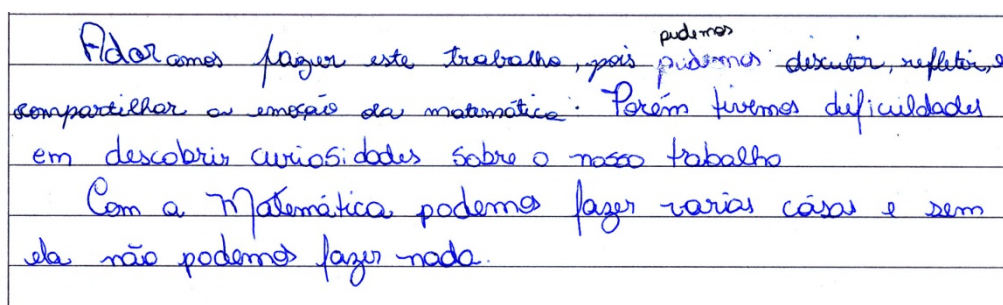 pudemos
Adoramos fazer este trabalho, pois pudemos discutir, refletir, e
compartilhar a emoção da matemática. Porém tivemos dificuldades
em descobrir curiosidades sobre o nosso trabalho
Com a Matemática podemos fazer varias cósas e sem
ela não podemos fazer nada.